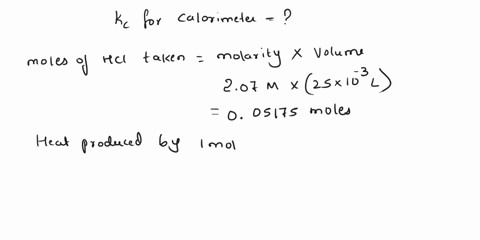 Kc for Calorimeter = ?
moles of HCl taken = molarity × Volume
2.07 M × (25×10⁻³ L)
= 0.05175 moles
Heat produced by 1mol